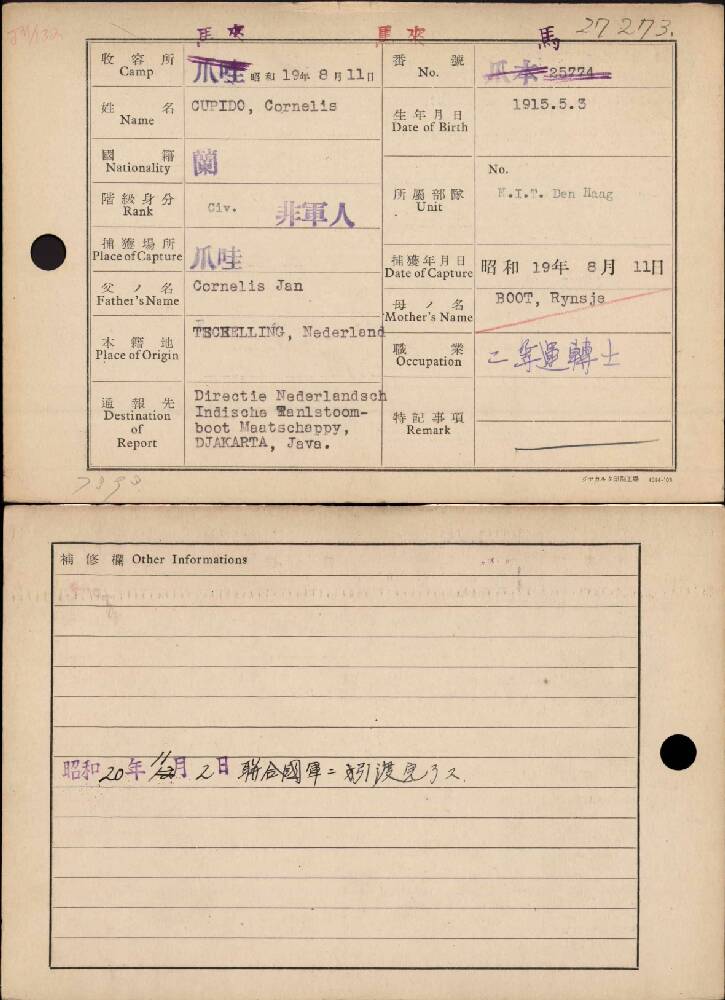 馬來
馬來
馬
27273.
收容所
Camp
爪哇 昭和 19年 8月11日
番號
No.
爪本 25774
姓名
Name
CUPIDO, Cornelis
生年月日
Date of Birth
1915.5.3
國籍
Nationality
蘭
所屬部隊
Unit
No.
N.I.T. Den Haag
階級身分
Rank
Civ.
非軍人
捕獲場所
Place of Capture
爪哇
捕獲年月日
Date of Capture
昭和 19年 8月 11日
父ノ名
Father's Name
Cornelis Jan
母ノ名
Mother's Name
BOOT, Rynsje
本籍地
Place of Origin
TSCHELLING, Nederland
職業
Occupation
二等運轉士
通報先
Destination
of
Report
Directie Nederlandsch
Indische Tanlstoom-
boot Maatschappy,
DJAKARTA, Java.
特記事項
Remark
7898
ジヤカルタ印刷工場
補修欄 Other Informations
昭和20年11月2日 聯合國軍ニ引渡完了ス.